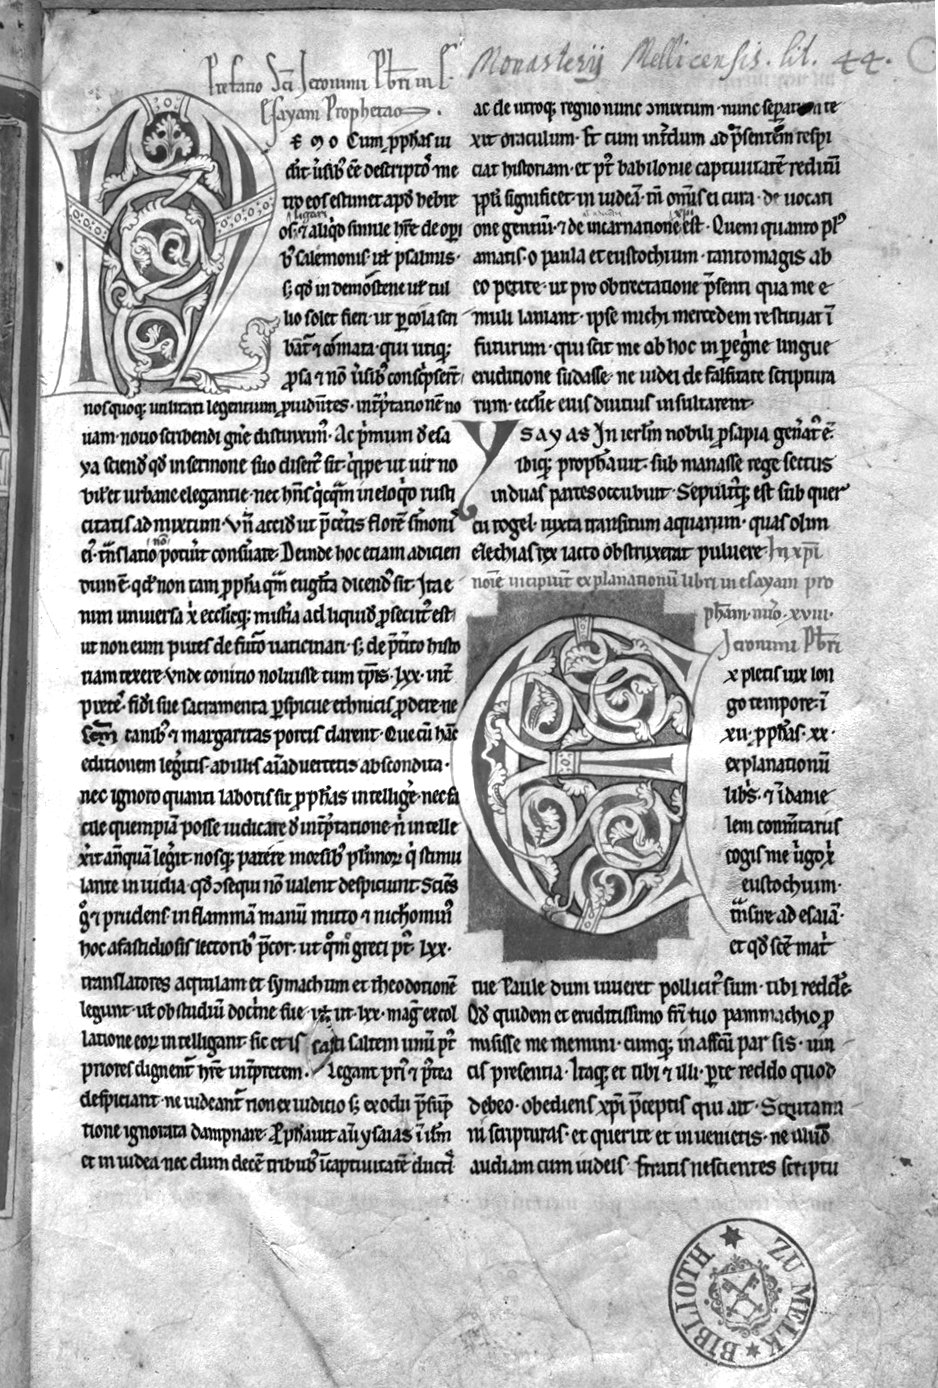 Prefatio Sc̄i Jeronimi Pb̄ri in E
Esayam Prophetā
Monasterij Mellicensis. lit. 44.
NEMO Cum ꝓphās ui
derit ūsib; eē descriptoſ· me
tro eos estimet apd̄ hebre
os· ligari
⁊ aliqd simile h̄re de ꝑi
b; salemonis· ul̄ psalmis·
s; qd̄ in demostene ul̄ tul
lio solet fieri· ut ꝑ cola scri
bant̄ ⁊ cōmata· qui utiq;
ꝓsa ⁊ nō ūsib; conscpsert̄
nos quoq; utilitati legentium ꝓuidētes· intp̄tationē no
uam· nouo scribendi gn̄e distinxim᷒· Ac p̄mum de esa
ya sciend̄ qd̄ in sermone suo disert᷒ sit· q̄ppe ut uir no
bilis et urbane elegantie· nec hn̄s qicqm̄ in eloqio rusti
citatis admixtum· Vn̄ accid̄ ut p̄ ceteris florē s̄monis
ei᷒ tn̄slatio nō potuit conseruare· Deinde hoc etiam adicien
dum ē· qd̄ non tam ꝓphā qm̄ euglt̄a dicend᷒ sit· Ita e
nim uniuersa x̄p̄i ecclieq; mist̄ia ad liquidū ꝓsecut᷒ est·
ut non eum putes de futō uaticinari· s; de p̄teito histo
riam texere· Vnde conitio noluisse tum tp̄is· lxx· int̄
pretes· fidei sue sacramenta ꝑspicue ethnicis ꝓdere· ne
sc̄m canib; ⁊ margaritas porcis darent· Que cū hāc
editionem legitis· ab illis aīaduertetis abscondita·
nec ignoro quanti laboris sit ꝓphās intelligere· nec fa
cile quempiā posse iudicare de intp̄tatione· n̄ intelle
xit anquā legit· nosq; patere morsib; plimoꝝ qi stimu
lante inuidia· qd̄ ↄsequi nō ualent despiciunt· Sciēs
ġ ⁊ prudens· in flammā manū mitto ⁊ nichominus
hoc a fastidiosis lectorib; p̄cor· ut qm̄ greci pt̄· lxx·
translatores aquilam et symachum et theodotionē
legunt· ul̄ ob studiū doctrine sue· ul̄ ut lxx· mag᷒ ex col
latione eoꝝ intelligant· sic et isti saltem unū pt̄
priores dignent̄ h̄re intp̄retem· Legant pri᷒ ⁊ p̄tea
despiciant· ne uideant̄ non ex iudicio s; ex odii p̄sūp
tione ignorata dampnare· Ꝓphauit aū ysaias ī ierlm̄
et in iudea· nec dum decē tribub᷒ ī captiuitatē ductis
ac de utroq; regno nunc ↄmixtum· nunc separatim te
xit oraculum· Et cum int̄dum ad p̄sentem respi
ciat historiam· et pt̄ babilonie captiuitatē reditū
ppl̄i significet· in iudeā· tn̄ omīs ei cura· de uocati
one gentiū· ⁊ de incarnatione xp̄i est· Quem quanto pl᷒
amatis· o paula et eustochium· tanto magis ab
eo petite· ut pro obtrectatione p̄senti qua me e
muli laniant· ipse michi mercedem restituat ī
futurum· qui scit me ob hoc in peregrine lingue
eruditione sudasse· ne iudei de falsitate scriptura
rum· ecclie eius diutius insultarent·
YSAYAS In ierlm̄ nobili ꝓsapia generat᷒ ē·
ibiq; prophauit· sub manasse rege sectus
in duas partes occubuit· Sepultq; est sub quer
cu rogel· iuxta transitum aquarum· quas olim
ezechias rex iacto obstruxerat puluere· In xp̄i
noīe incipiūt explanationū libri in esayam pro
phām· nūo· xviii·
Jeronimi Pb̄ri
Expletis uix lon
go tempore· ī
xii· ꝓphās· xx·
explanationū
lib̄s· ⁊ ī danie
lem comm̄tariis
cogis me uirgo x̄p̄i
eustochium·
tn̄sire ad esaiā·
et qd̄ scē mat̄i
tue Paule dum uiueret pollicit᷒ sum· tibi reddere·
Qd̄ quidem et eruditissimo fr̄i tuo pammachio ꝓ
misisse me memini· cumq; in affectu par sis· uin
cis presentia· Itaq; et tibi ⁊ illi· ꝑ te reddo quod
debeo· obediens xp̄i p̄ceptis qui ait· Scrutami
ni scripturas· et querite et inuenietis· ne illud
audiam cum iudeis· Erratis nescientes scriptu
BIBLIOTH. ZU MELK